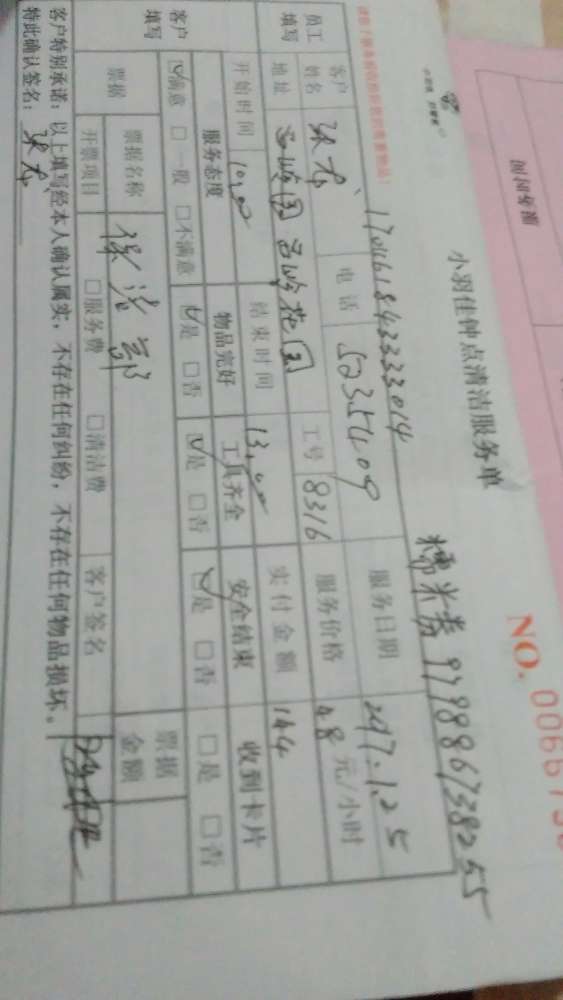 服务时间
小羽佳钟点清洁服务单
NO. 0066736
糯米券 979886738255
17046184333014
客户 姓名 张友 电话 5035409 服务日期 2017.1.25
员工 填写 地址 西岭园 西岭花园 工号 8316 服务价格 48 元/小时
开始时间 10:00 结束时间 13:00 实付金额 144
客户 填写 服务态度 物品完好 工具齐全 安全结束 收到卡片
☑满意 □一般 □不满意 ☑是 □否 ☑是 □否 ☑是 □否 □是 □否
票据 票据名称 保洁部 票据 金额
开票项目 □服务费 □清洁费 客户签名
客户特别承诺：以上填写经本人确认属实，不存在任何纠纷，不存在任何物品损坏。
特此确认签名：张友